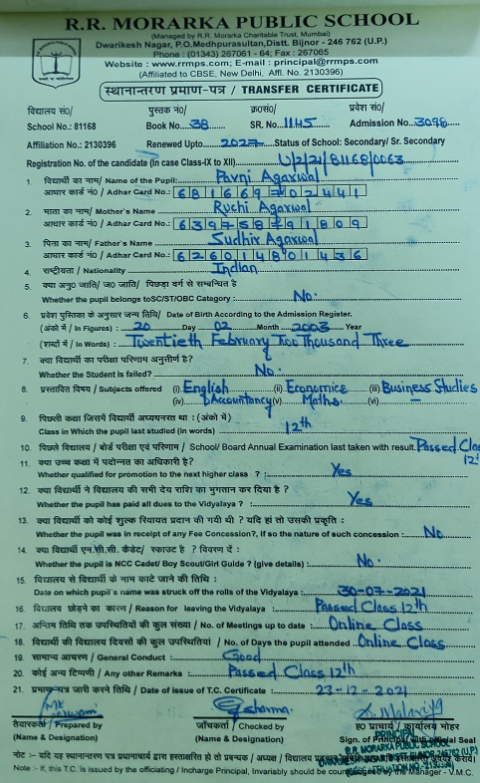 R.R. MORARKA PUBLIC SCHOOL
(Managed by R.R. Morarka Charitable Trust, Mumbai)
Dwarikesh Nagar, P.O.Medhpurasultan,Distt. Bijnor - 246 762 (U.P.)
Phone : (01343) 267061 - 64; Fax : 267065
Website : www.rrmps.com; E-mail : principal@rrmps.com
(Affiliated to CBSE, New Delhi, Affl. No. 2130396)
स्थानान्तरण प्रमाण-पत्र / TRANSFER CERTIFICATE
विद्यालय सं०/ पुस्तक नं०/ क्र०सं०/ प्रवेश सं०/
School No.: 81168 Book No. 38 SR. No. 1145 Admission No. 3098
Affiliation No.: 2130396 Renewed Upto 2027 Status of School: Secondary/ Sr. Secondary
Registration No. of the candidate (In case Class-IX to XII) U/2/21/81168/0063
1. विद्यार्थी का नाम/ Name of the Pupil: Pavni Agarwal
आधार कार्ड नं०/ Adhar Card No.: 681669702441
2. माता का नाम/ Mother's Name Ruchi Agarwal
आधार कार्ड नं०/ Adhar Card No.: 639758791809
3. पिता का नाम/ Father's Name Sudhir Agarwal
आधार कार्ड नं०/ Adhar Card No.: 626014801436
4. राष्ट्रीयता / Nationality Indian
5. क्या अनु० जाति/ ज० जाति/ पिछड़ा वर्ग से सम्बन्धित है
Whether the pupil belongs toSC/ST/OBC Category : No.
6. प्रवेश पुस्तिका के अनुसार जन्म तिथि/ Date of Birth According to the Admission Register.
(अंको में / In Figures) : 20 Day 02 Month 2003 Year
(शब्दों में / In Words) : Twentieth February Two Thousand Three
7. क्या विद्यार्थी का परीक्षा परिणाम अनुत्तीर्ण है?
Whether the Student is failed? No.
8. प्रस्तावित विषय / Subjects offered (i) English (ii) Economics (iii) Business Studies
(iv) Accountancy (v) Maths. (vi) —
9. पिछली कक्षा जिसमें विद्यार्थी अध्ययनरत था : (अंको में)
Class in Which the pupil last studied (in words) 12th
10. पिछले विद्यालय / बोर्ड परीक्षा एवं परिणाम / School/ Board Annual Examination last taken with result. Passed Class 12th
11. क्या उच्च कक्षा में पदोन्नत का अधिकारी है?
Whether qualified for promotion to the next higher class ? : Yes
12. क्या विद्यार्थी ने विद्यालय की सभी देय राशि का भुगतान कर दिया है ?
Whether the pupil has paid all dues to the Vidyalaya ? Yes
13. क्या विद्यार्थी को कोई शुल्क रियायत प्रदान की गयी थी ? यदि हां तो उसकी प्रकृति :
Whether the pupil was in receipt of any Fee Concession?, If so the nature of such concession : No
14. क्या विद्यार्थी एन.सी.सी. कैडेट/ स्काउट है ? विवरण दें :
Whether the pupil is NCC Cadet/ Boy Scout/Girl Guide ? (give details) : No.
15. विद्यालय से विद्यार्थी के नाम काटे जाने की तिथि :
Date on which pupil's name was struck off the rolls of the Vidyalaya : 30-07-2021
16. विद्यालय छोड़ने का कारण / Reason for leaving the Vidyalaya : Passed Class 12th
17. अन्तिम तिथि तक उपस्थितियों की कुल संख्या / No. of Meetings up to date : Online Class
18. विद्यार्थी की विद्यालय दिवसों की कुल उपस्थितियां / No. of Days the pupil attended Online Class
19. सामान्य आचरण / General Conduct : Good
20. कोई अन्य टिप्पणी / Any other Remarks : Passed Class 12th
21. प्रमाण पत्र जारी करने तिथि / Date of issue of T.C. Certificate : 23-12-2021
तैयारकर्ता / Prepared by जाँचकर्ता / Checked by ह० प्राचार्य / कार्यालय मोहर
(Name & Designation) (Name & Designation) Sign. of Principal with official Seal
PRINCIPAL
R.R. MORARKA PUBLIC SCHOOL
नोट :- यदि यह स्थानान्तरण पत्र प्रधानाचार्य द्वारा हस्ताक्षरित हो तो प्रबन्धक / अध्यक्ष / विद्यालय
Note :- If this, T.C. is issued by the officiating / Incharge Principal, Invariably should be by the Manager - V.M.C.